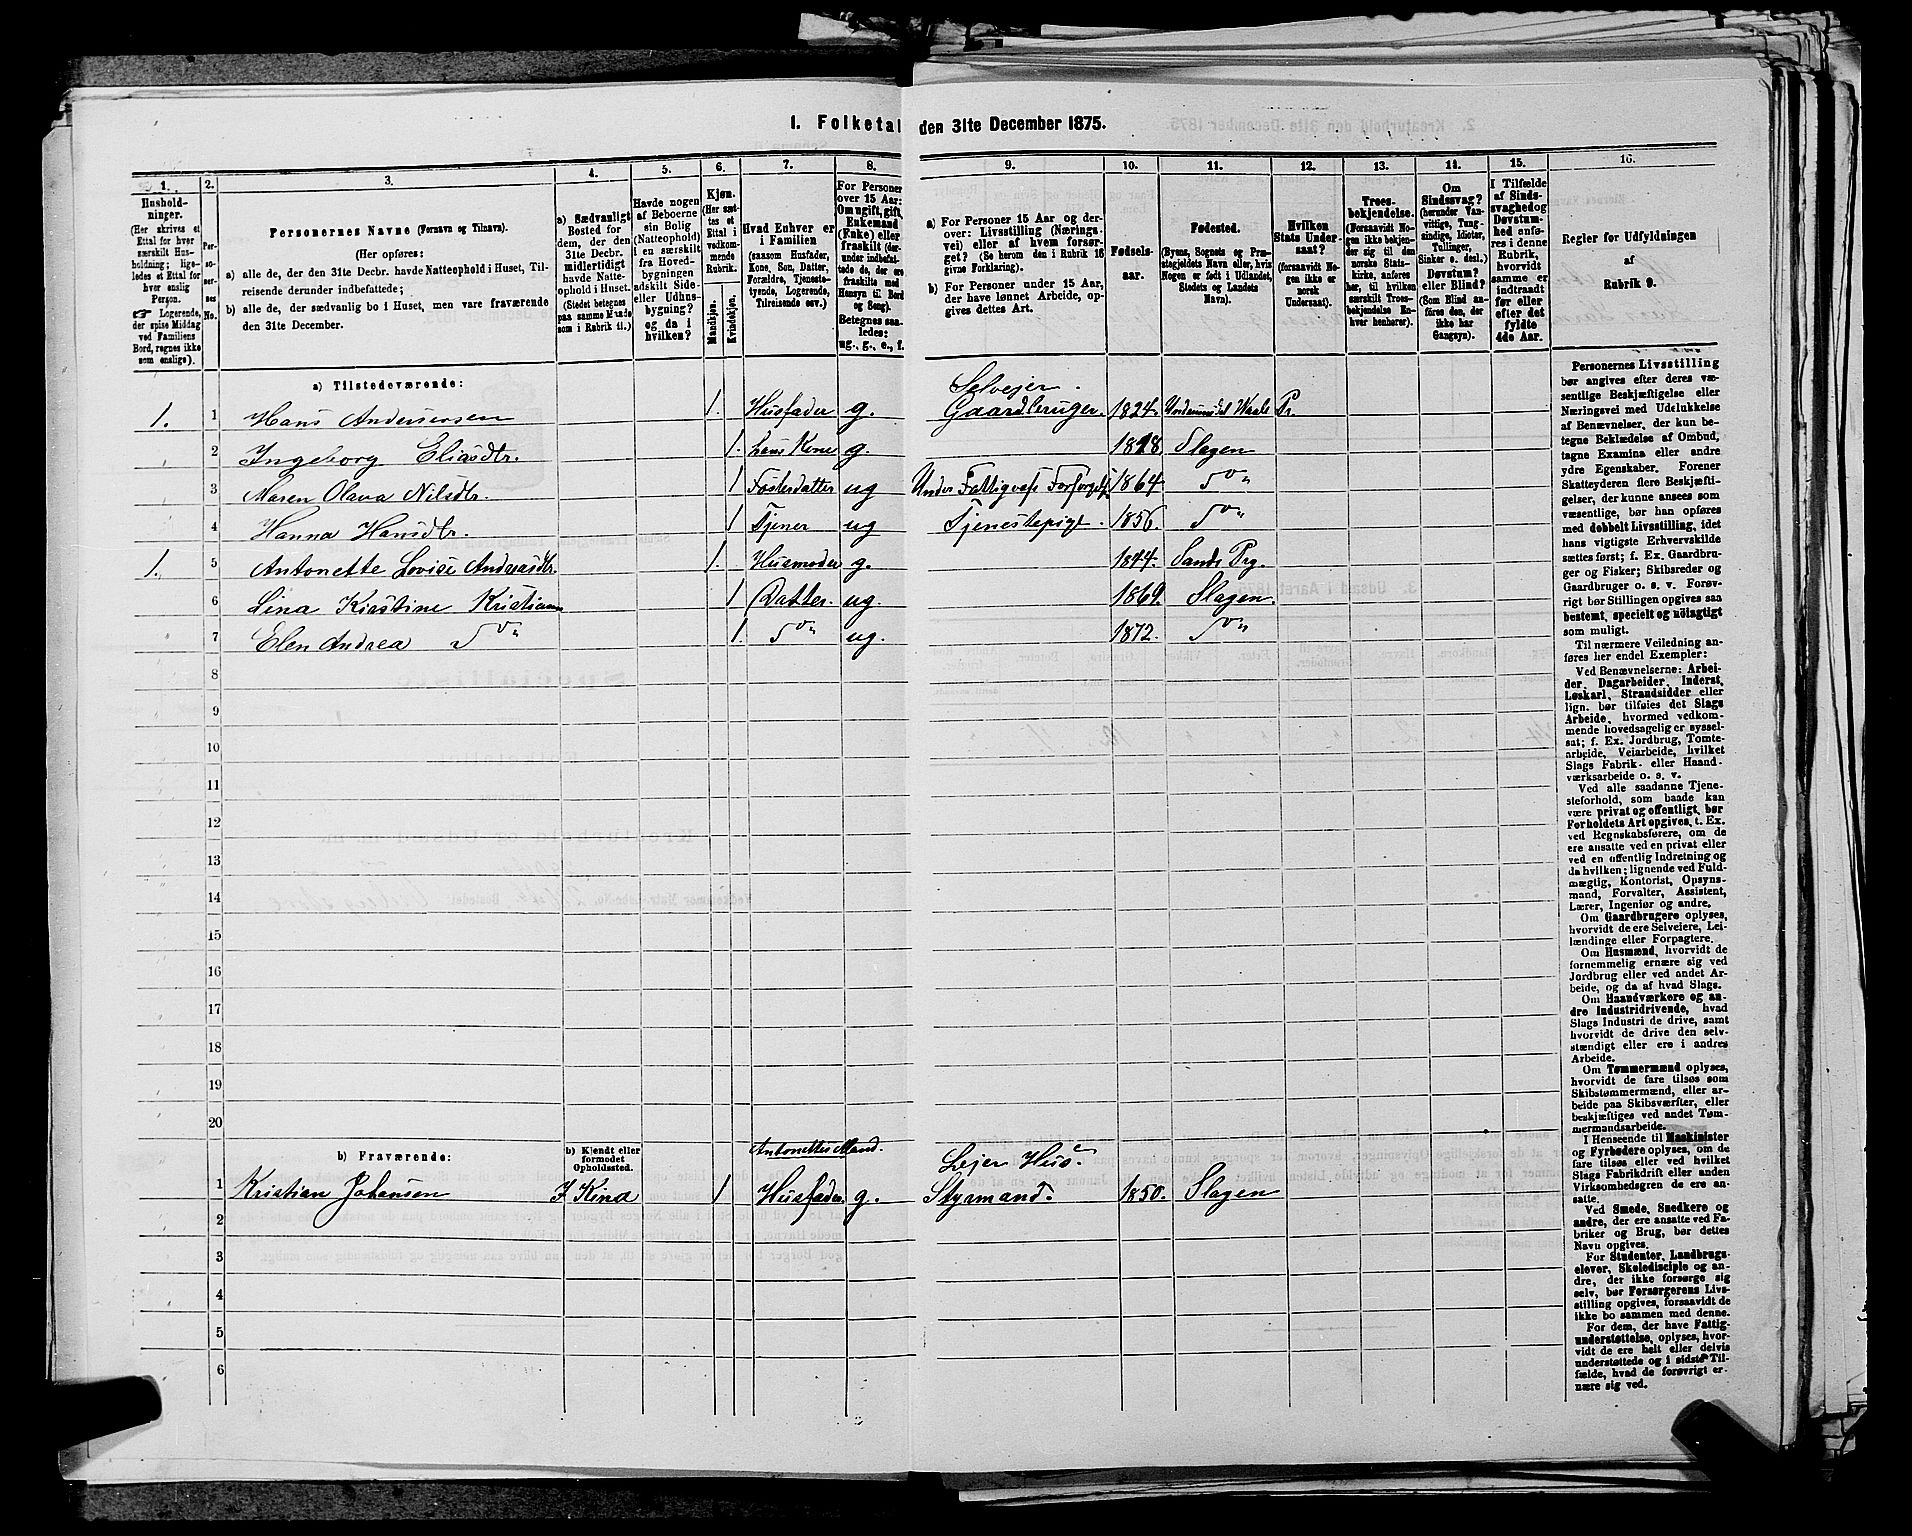 1. Folketal den 31te December 1875.
1. 2. 3. 4. 5. 6. 7. 8. 9. 10. 11. 12. 13. 14. 15. 16.
Hushold-
ninger.
(Her skrives et
Ettal for hver
særskilt Hus-
holdning; lige-
ledes et Ettal for
hver enslig
Person.
☞ Logerende,
der spise Middag
ved Familiens
Bord, regnes ikke
som enslige).
Per-
so-
ner-
nes
No.
Personernes Navne (Fornavn og Tilnavn).
(Her opføres:
a) alle de, der den 31te Decbr. havde Natteophold i Huset, Til-
reisende derunder indbefattede;
b) alle de, der sædvanlig bo i Huset, men vare fraværende
den 31te December.
a) Sædvanligt
Bosted for
dem, der den
31te Decbr.
midlertidigt
havde Natte-
ophold i Huset.
(Stedet betegnes
paa samme Maade
som i Rubrik 11.)
Havde nogen
af Beboerne
sin Bolig
(Natteophold)
i en særskilt
fra Hoved-
bygningen
adskilt Side-
eller Udhus-
bygning?
og da i
hvilken?
Kjøn.
(Her sæt-
tes et
Ettal i
vedkom-
mende
Rubrik.
Mandkjøn.
Kvindekjøn.
Hvad Enhver er
i Familien
(saasom Husfader,
Kone, Søn, Datter,
Forældre, Tjeneste-
tyende, Logerende,
Tilreisende osv.)
For Personer
over 15 Aar:
Om ugift, gift,
Enkemand
(Enke) eller
fraskilt (der-
under indbefat-
tede de, der ere
fraskilte med
Hensyn til Bord
og Seng).
Betegnes saa-
ledes:
ug., g., e., f.
a) For Personer 15 Aar og der-
over: Livsstilling (Nærings-
vei) eller af hvem forsør-
get? (Se herom den i Rubrik 16
givne Forklaring).
b) For Personer under 15 Aar,
der have lønnet Arbeide, op-
gives dettes Art.
Fødsels-
aar.
Fødested.
(Byens, Sognets og Præ-
stegjeldets Navn eller, hvis
Nogen er født i Udlandet,
Stedets og Landets
Navn).
Hvilken
Stats Under-
saat?
(forsaavidt No-
gen ikke er
norsk
Undersaat).
Troes-
bekjendelse.
(Forsaavidt No-
gen ikke bekjen-
der sig til den
norske Stats-
kirke, anføres
her, til hvilken
særskilt Troes-
bekjendelse En-
hver henhører).
Om
Sindssvag?
(herunder Van-
vittige, Tung-
sindige, Idioter,
Tullinger,
Sinker o. desl.)
Døvstum?
eller Blind?
(Som Blind an-
føres den, der
ikke har
Gangsyn).
I Tilfælde
af Sinds-
svaghed og
Døvstum-
hed anfø-
res i denne
Rubrik,
hvorvidt
samme er
indtraadt
før eller
efter det
fyldte
4de Aar.
Regler for Udfyldningen
af
Rubrik 9.
a) Tilstedeværende:
1. 1 Hans Andersersen 1. Husfader g. Selvejer. Gaardbruger. 1824. Pr.
2 Ingeborg Eliasdtr. 1. hans Kone g. 1818 Slagen
3 Maren Olava Nilsdtr. 1 Fosterdatter ug Under Fattigvæs Forsørgels 1864. Do„
4 Hanna Hansdtr. 1 Tjener ug Tjenestepige. 1856. Do„
1. 5 Antonette Lovise Andreasdtr. 1. Husmoder g. 1844. Sande Prg.
6 Lina Kirstine Kristians 1 Datter. ug. 1869. Slagen.
7 Elen Andrea Do„ 1. Do„ ug. 1872. Do„
8
9
10
11
12
13
14
15
16
17
18
19
20
b) Fraværende:
b) Kjendt eller
formodet
Opholdssted.
Antonettes Mand.
Lejer Hus
1 Kristian Johansen I Kina 1 Husfader. g. Styrmand. 1850. Slagen
2
3
4
5
6
Personernes Livsstilling
bør angives efter deres væ-
sentlige Beskjæftigelse eller
Næringsvei med Udelukkelse
af Benævnelser, der kun be-
tegne Beklædelse af Ombud,
tagne Examina eller andre
ydre Egenskaber. Forener
Skatteyderen flere Beskjæfti-
gelser, der kunne ansees som
væsentlige, bør han opføres
med dobbelt Livsstilling, idet
hans vigtigste Erhvervskilde
sættes først; f. Ex. Gaardbru-
ger og Fisker; Skibsreder og
Gaardbruger o. s. v. Forøv-
rigt bør Stillingen opgives saa
bestemt, specielt og nøiagtigt
som muligt.
Til nærmere Veiledning an-
føres her endel Exempler:
Ved Benævnelserne: Arbei-
der, Dagarbeider, Inderst,
Løskarl, Strandsidder eller
lign. bør tilføies det Slags
Arbeide, hvormed vedkom-
mende hovedsagelig er syssel-
sat; f. Ex. Jordbrug, Tomte-
arbeide, Veiarbeide, hvilket
Slags Fabrik- eller Haand-
værksarbeide o. s. v.
Ved alle saadanne Tjene-
steforhold, som baade kan
være privat og offentlig, bør
Forholdets Art opgives, t. Ex.
ved Regnskabsførere, om de
ere ansatte ved en privat eller
ved en offentlig Indretning og
da hvilken; lignende ved Fuld-
mægtig, Kontorist, Opsyns-
mand, Forvalter, Assistent,
Lærer, Ingeniør og andre.
Om Gaardbrugere oplyses,
hvorvidt de ere Selveiere, Lei-
lændinge eller Forpagtere.
Om Husmænd, hvorvidt de
fornemmelig ernære sig ved
Jordbrug eller ved andet Ar-
beide, og da af hvad Slags.
Om Haandværkere og an-
dre Industridrivende, hvad
Slags Industri de drive, samt
hvorvidt de drive den selv-
stændigt eller ere i andres
Arbeide.
Om Tømmermænd oplyses,
hvorvidt de fare tilsøs som
Skibstømmermænd, eller ar-
beide paa Skibsværfter, eller
beskjæftiges ved andet Tøm-
mermandsarbeide.
I Henseende til Maskinister
og Fyrbødere oplyses, om de
fare tilsøs eller ved hvilket
Slags Fabrikdrift eller anden
Virksomhedsgren de ere an-
satte.
Ved Smede, Snedkere og
andre, der ere ansatte ved Fa-
briker og Brug, bør dettes
Navn opgives.
For Studenter, Landbrugs-
elever, Skoledisciple og an-
dre, der ikke forsørge sig
selv, bør Forsørgerens Livs-
stilling opgives, forsaavidt de
ikke bo sammen med denne.
For dem, der have Fattig-
understøttelse, oplyses, hvor-
vidt de ere helt eller delvis
understøttede og i sidste Til-
fælde, hvad de forøvrigt er-
nære sig ved.